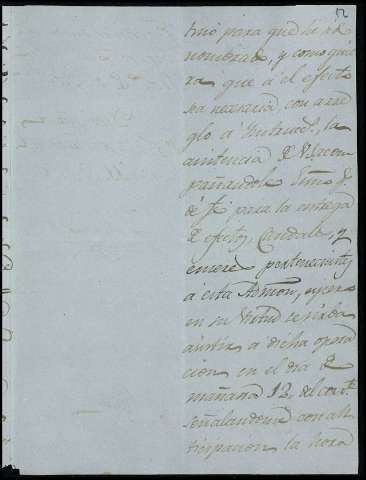 12
tino para que ha sido
nombrado, y como quie
ra que á el efecto
sea necesaria con arre
glo á Instruc.ⁿ, la
asistencia de V. acom
pañandole Essno. q.
dé fé para la entrega
de efectos, Caudales, y
enseres pertenecientes
á esta Admon, espero
en su virtud se sirba
asistir a dicha opera
cion en el dia de
mañana 12, del corr.te
señalandome con an
ticipacion la hora